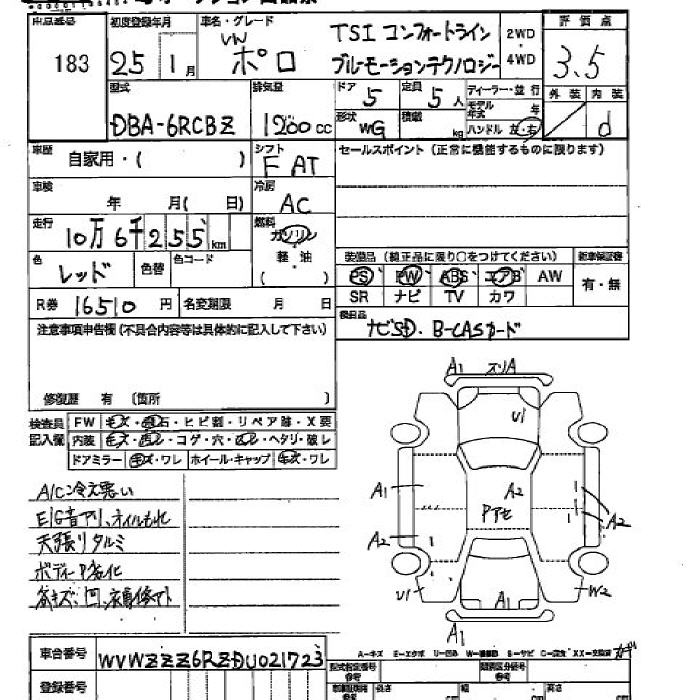 出品番号 初度登録年月 車名・グレード 評価点
183 25 1月 VW ポロ TSI コンフォートライン 2WD・4WD 3.5
ブルーモーションテクノロジー
型式 排気量 ドア 定員 ディーラー・並行 外装 内装
DBA-6RCBZ 1200cc 5 5人 モデル年式 年 d
形状 WG 積載 kg ハンドル 左・右
車歴 自家用・( ) シフト F AT セールスポイント (正常に機能するものに限ります)
車検 年 月( 日) 冷房 AC
走行 10万6千255km 燃料 ガソリン
軽油
( )
色 レッド 色替 色コード
装備品 (純正品に限り○をつけてください) 新車保証書
PS PW ABS エアB AW 有・無
SR ナビ TV カワ
R券 16510円 名変期限 月 日
欠品目 ナビSD. B-CASカード
注意事項申告欄 (不具合内容等は具体的に記入して下さい)
修復歴 有 (箇所 )
検査員記入欄 FW キズ・飛石・ヒビ割・リペア跡・X要
内装 キズ・・コゲ・穴・・ヘタリ・破レ
ドアミラー キズ・ワレ ホイール・キャップ キズ・ワレ
A/C冷え悪い
E/G音アリ、オイルもれ
天張りタルミ
ボディーP劣化
キズ、凹、
A1 スリA
U1
A1 A2
Pアセ A2
A2
U1 W2
A1
A1
車台番号 WVWZZZ6RZDU021723
A-キズ E-エクボ U-凹み W-補修跡 S-サビ C-腐食 XX-交換済
登録番号 型式指定番号 類別区分番号
長さ cm 幅 cm 高さ cm